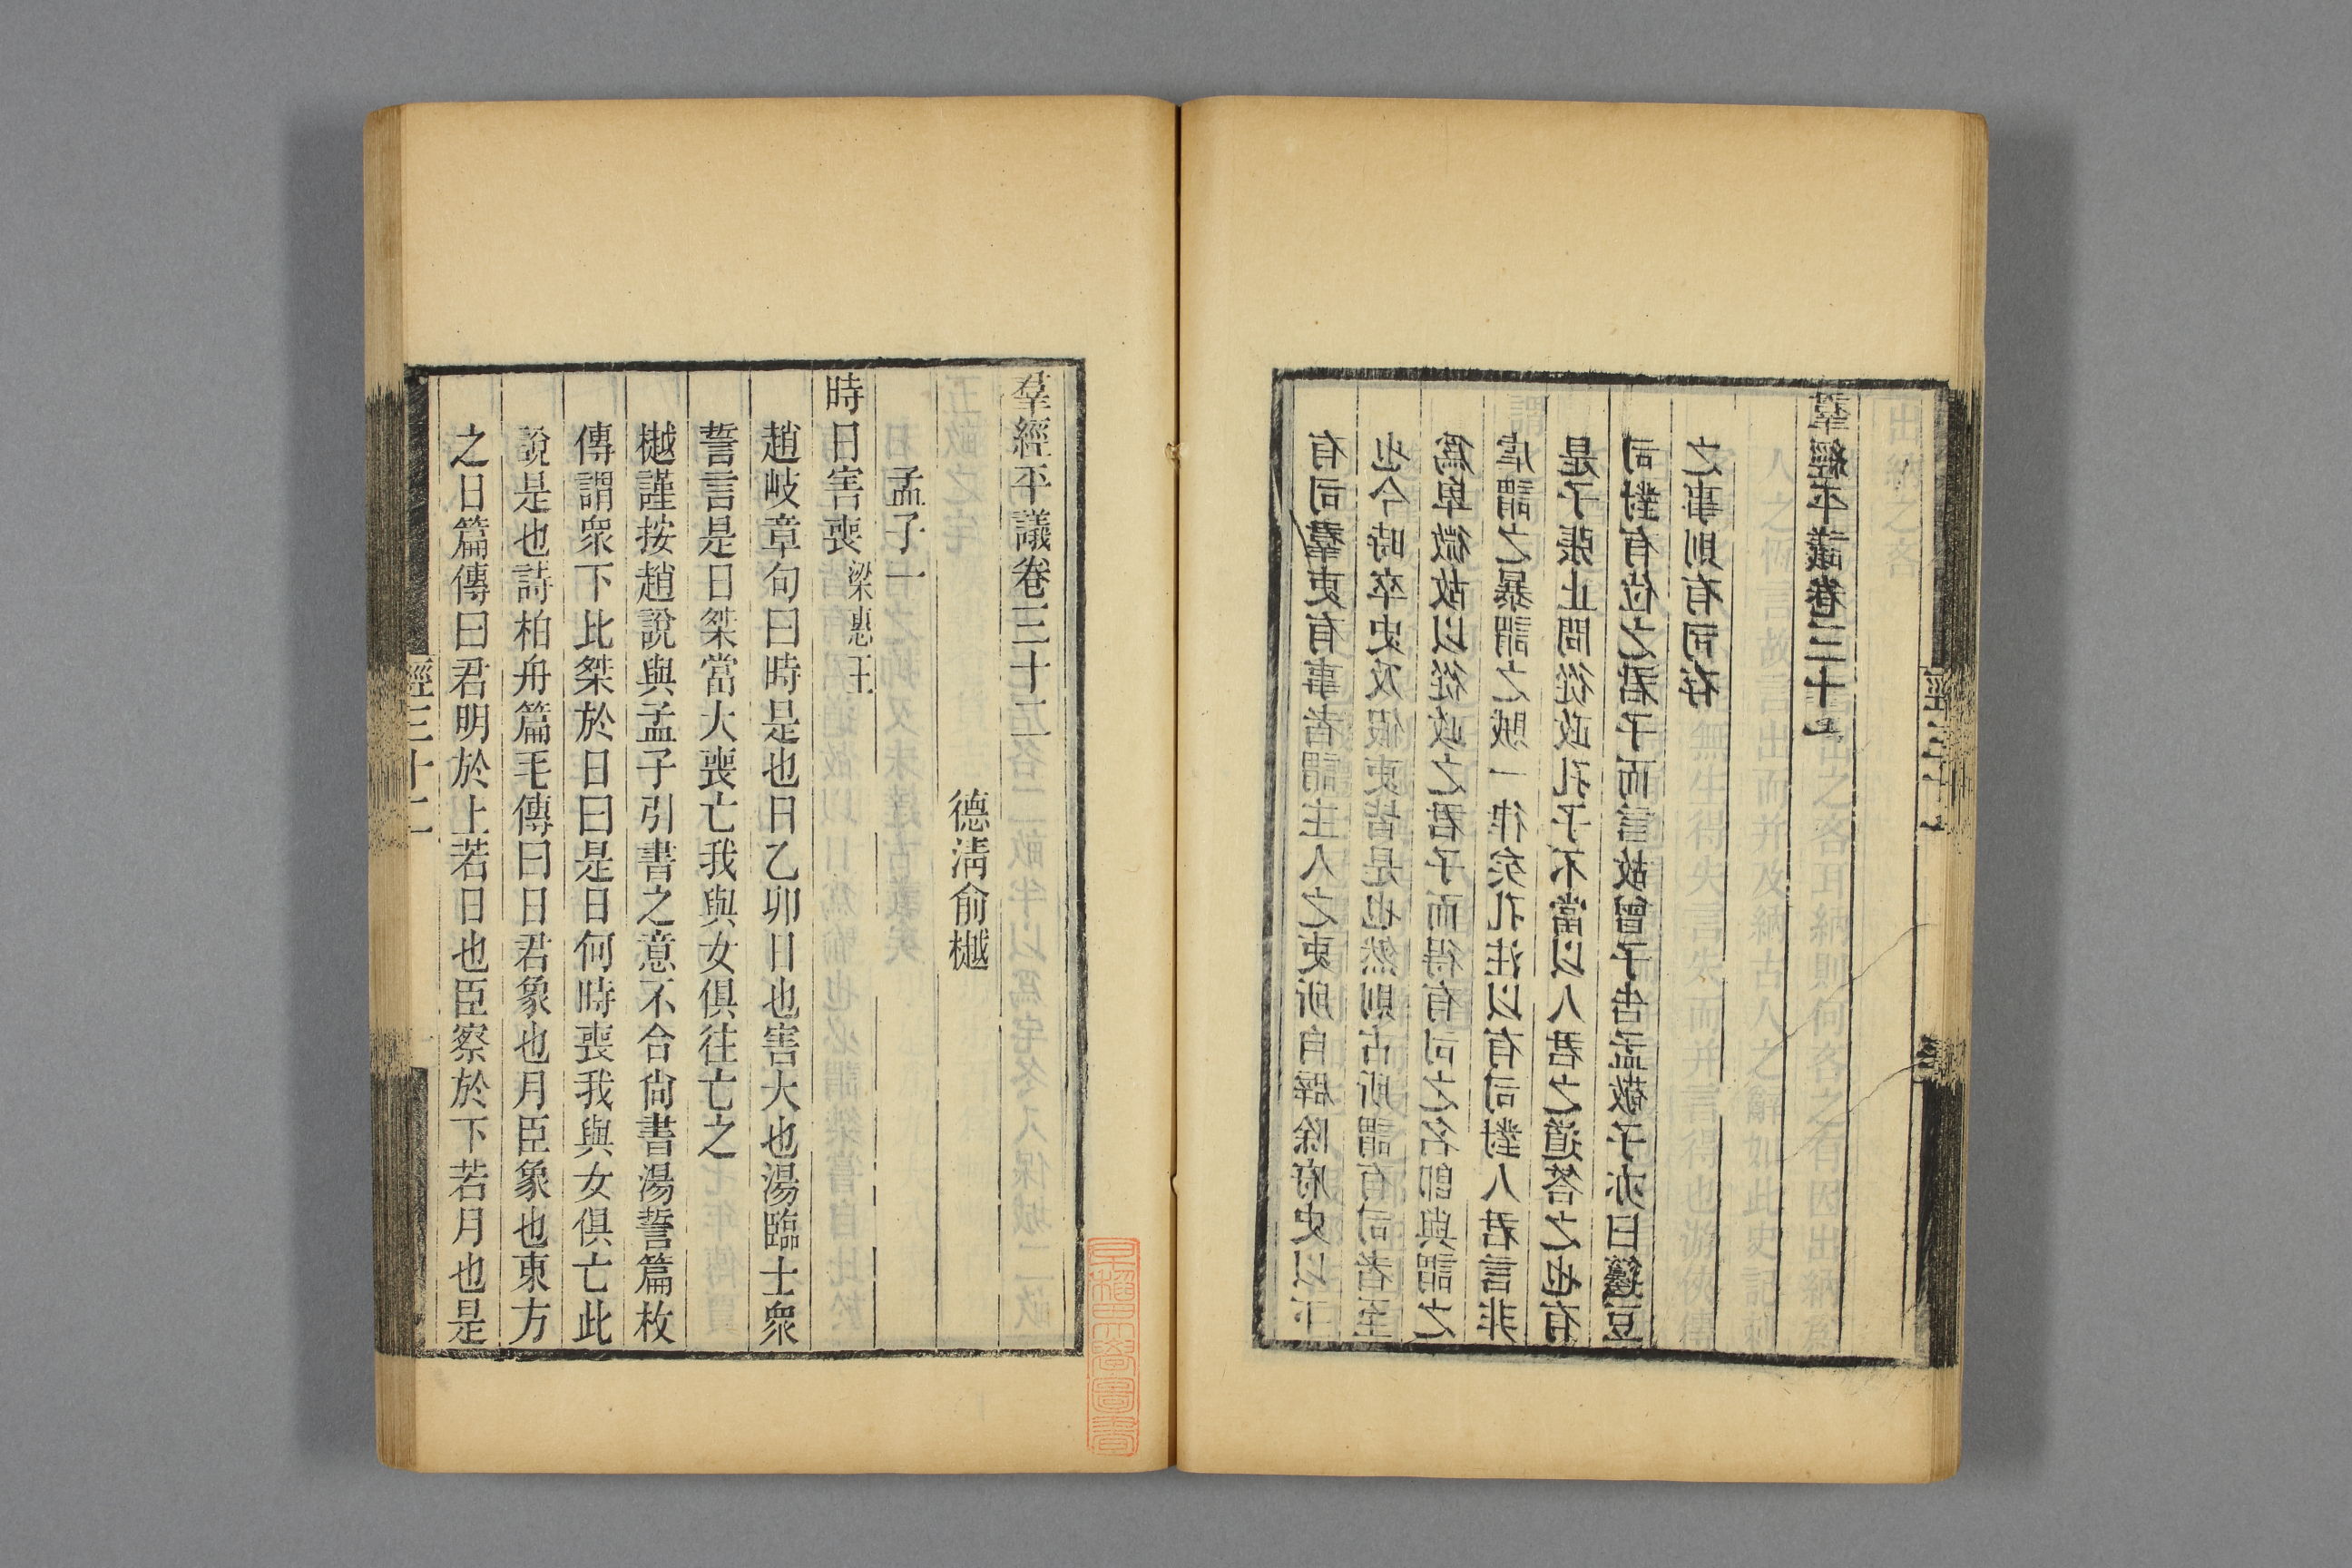 有司羣吏有事者謂主人之吏所自辟除府史以下
也今時卒史及假吏皆是也然則古所謂有司者至
爲卑微故以從政之君子而得有司之名卽與謂之
虐謂之暴謂之賊一律矣孔注以有司對人君言非
是子張止問從政孔子不當以人君之道答之也有
司對有位之君子而言故曾子告孟敬子亦曰籩豆
之事則有司存
羣經平議卷三十一
經三十一
羣經平議卷三十二
德淸俞樾
孟子一
時日害喪梁惠王
趙岐章句曰時是也日乙卯日也害大也湯臨士衆
誓言是日桀當大喪亡我與女俱往亡之
樾謹按趙說與孟子引書之意不合尙書湯誓篇枚
傳謂衆下比桀於日曰是日何時喪我與女俱亡此
說是也詩柏舟篇毛傳曰日君象也月臣象也東方
之日篇傳曰君明於上若日也臣察於下若月也是
經三十二
早稻田大學圖書